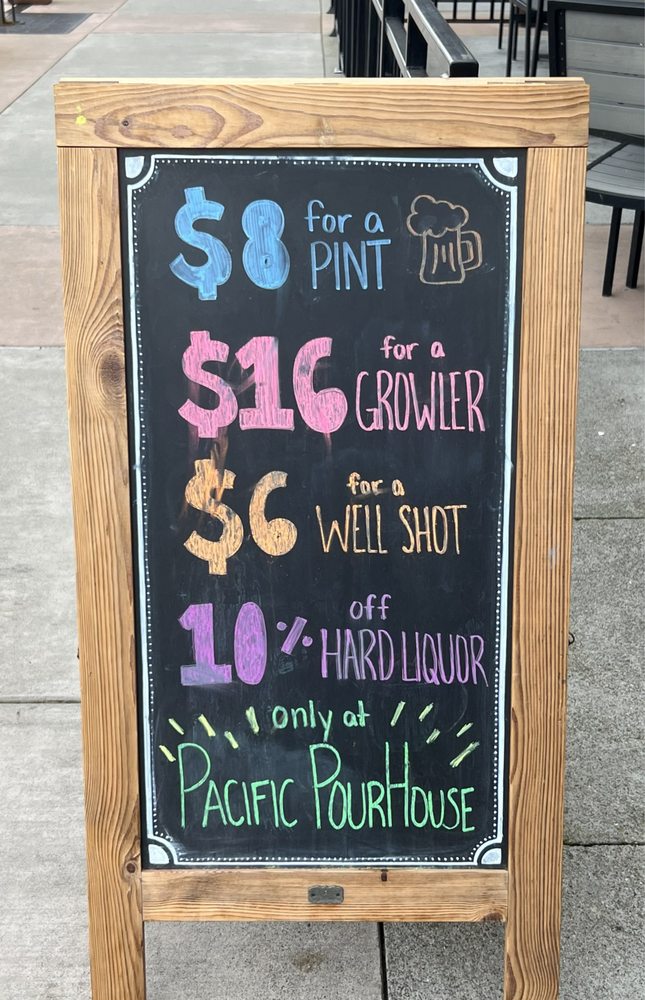 $8 for a PINT
$16 for a GROWLER
$6 for a WELL SHOT
10% off HARD LIQUOR
only at
PACIFIC POURHOUSE